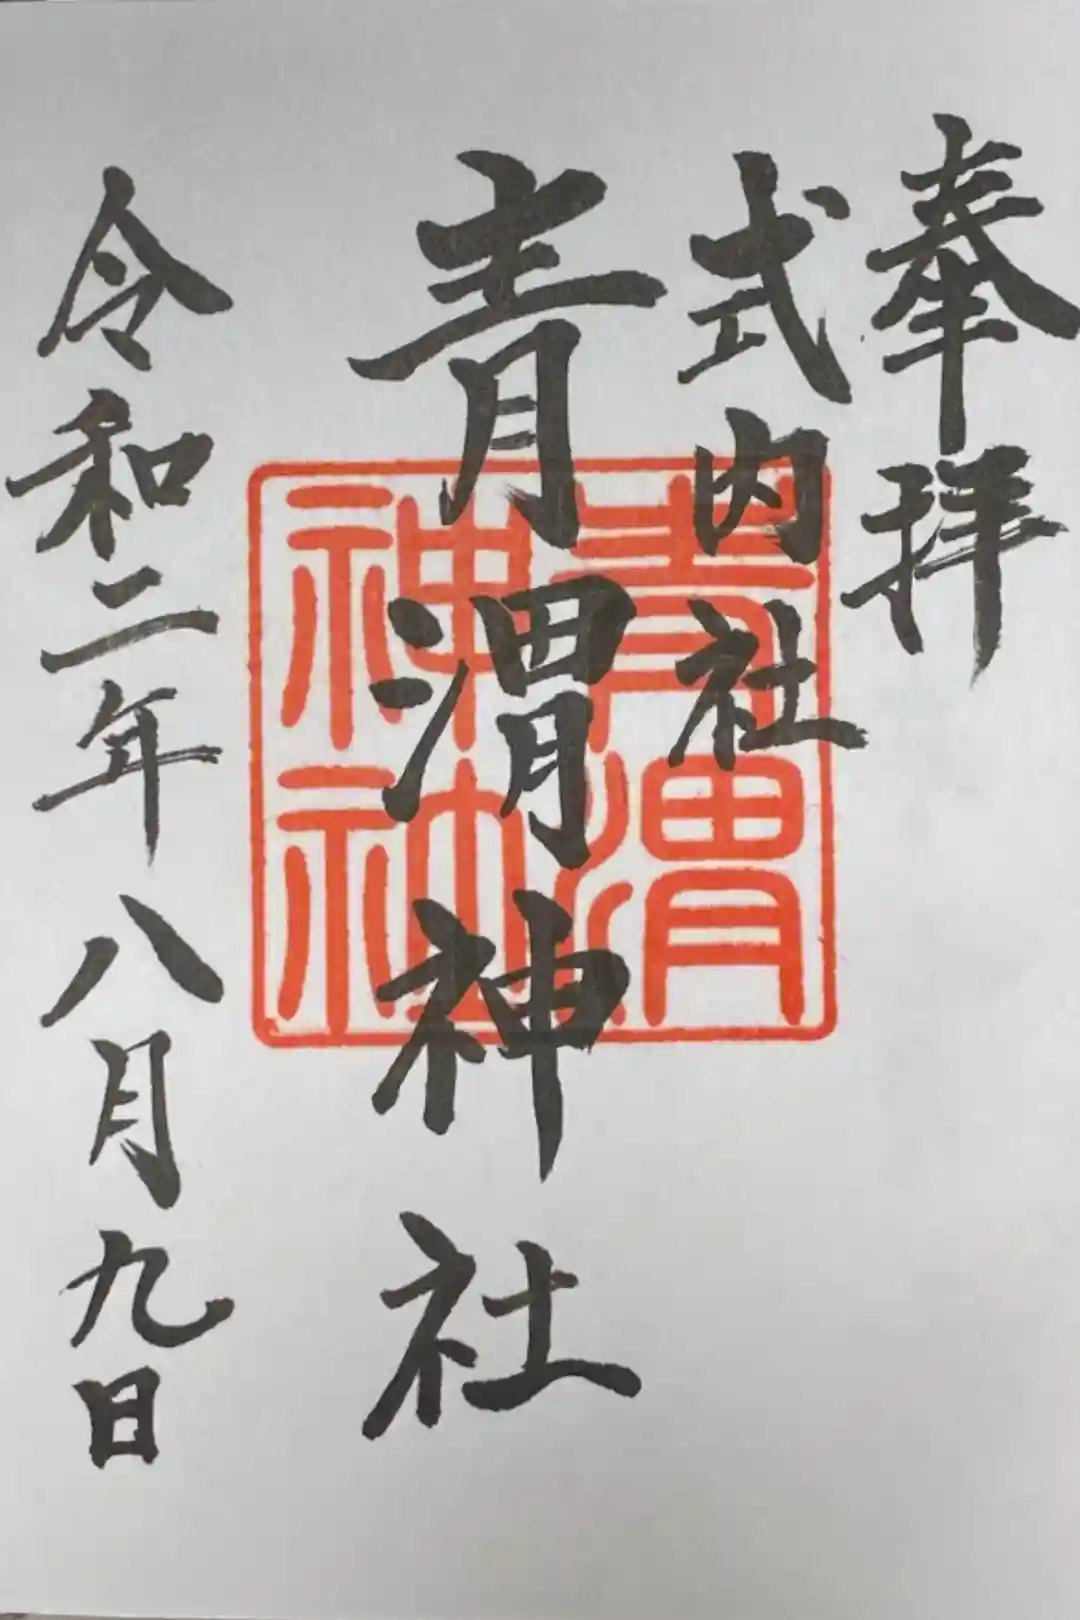 奉拝
式内社
青渭神社
令和二年八月九日
青渭
神社